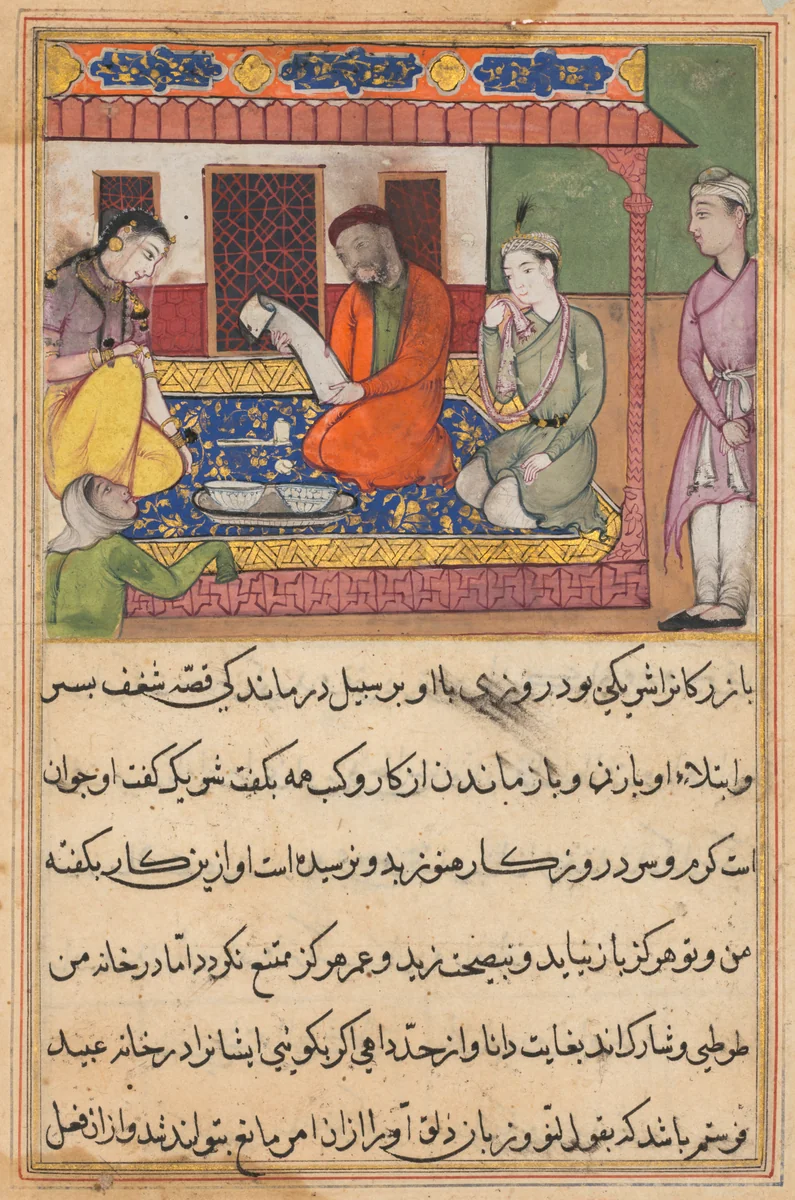 بازرکانرا شریکی بود روزی با او بر سبیل درماندکی قصّه شغف بسر
وابتلاء او با زن و باز ماندن از کار و کسب همه بکفت شریک کفت او جوان
است کرم و سرد روزکار هنوز ندیده است او ازین کار بکفته
من و تو هرکز باز نیاید و بنصیحت زید و عمر هرکز ممتنع نکردد امّا در خانه من
طوطی و شارک اند بغایت دانا و از حدّ داهی اکر بکوئی ایشانرا در خانه عبید
فرستم باشد که بقول و زبان ذلق او را ازان امر مانع بتوانند شد و ازان فعل